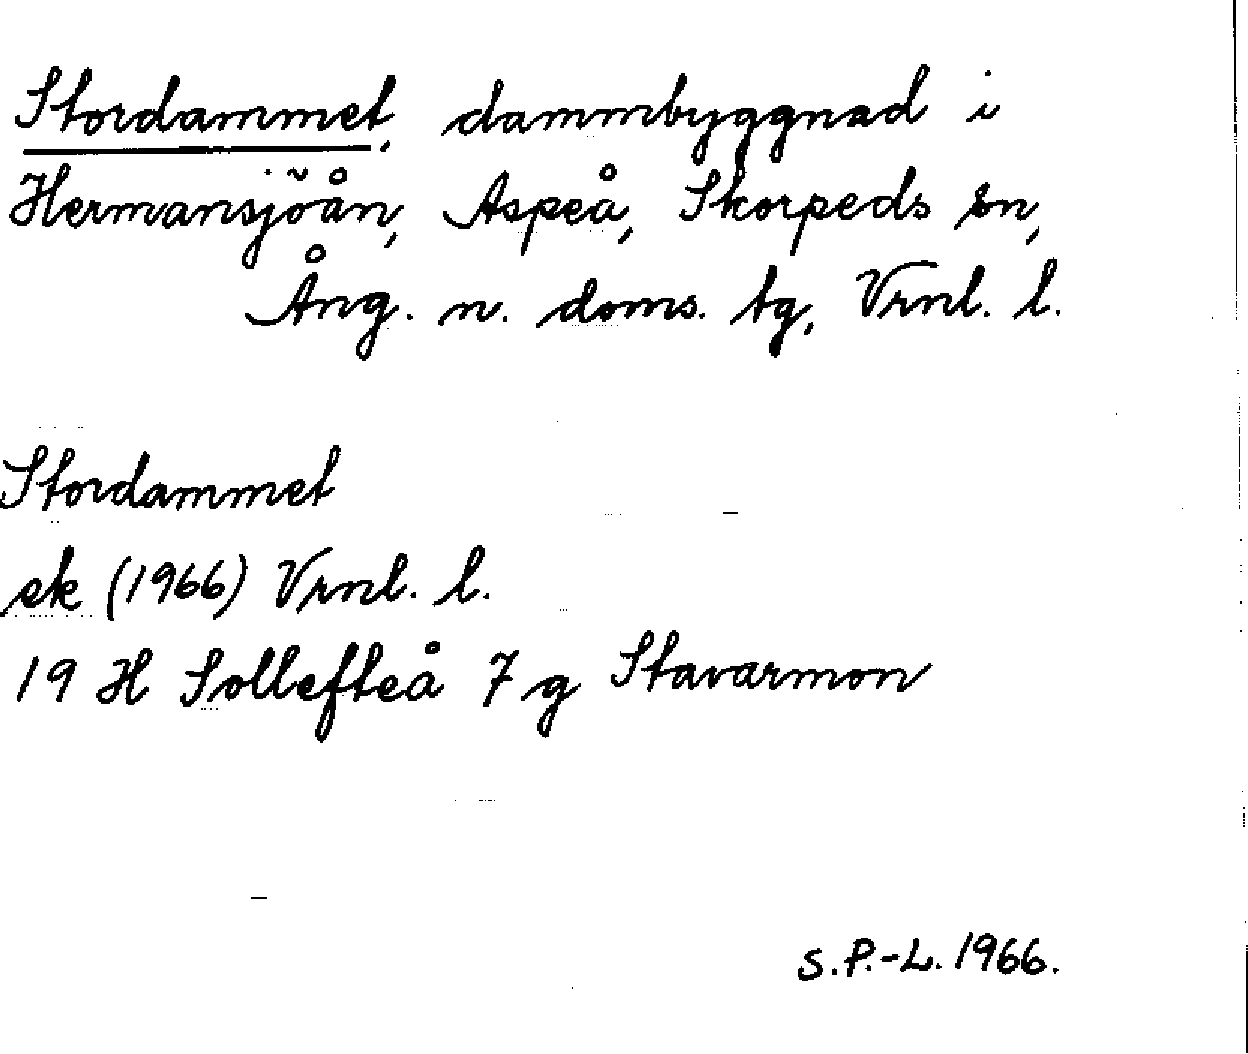 Stordammet, dammbyggnad i
Hermansjöån, Aspeå, Skorpeds sn,
Ång. n. doms. tg, Vrnl. l.
Stordammet
ek (1966) Vrnl. l.
19 H Sollefteå 7 g Stavarmon
S.P.-L. 1966.